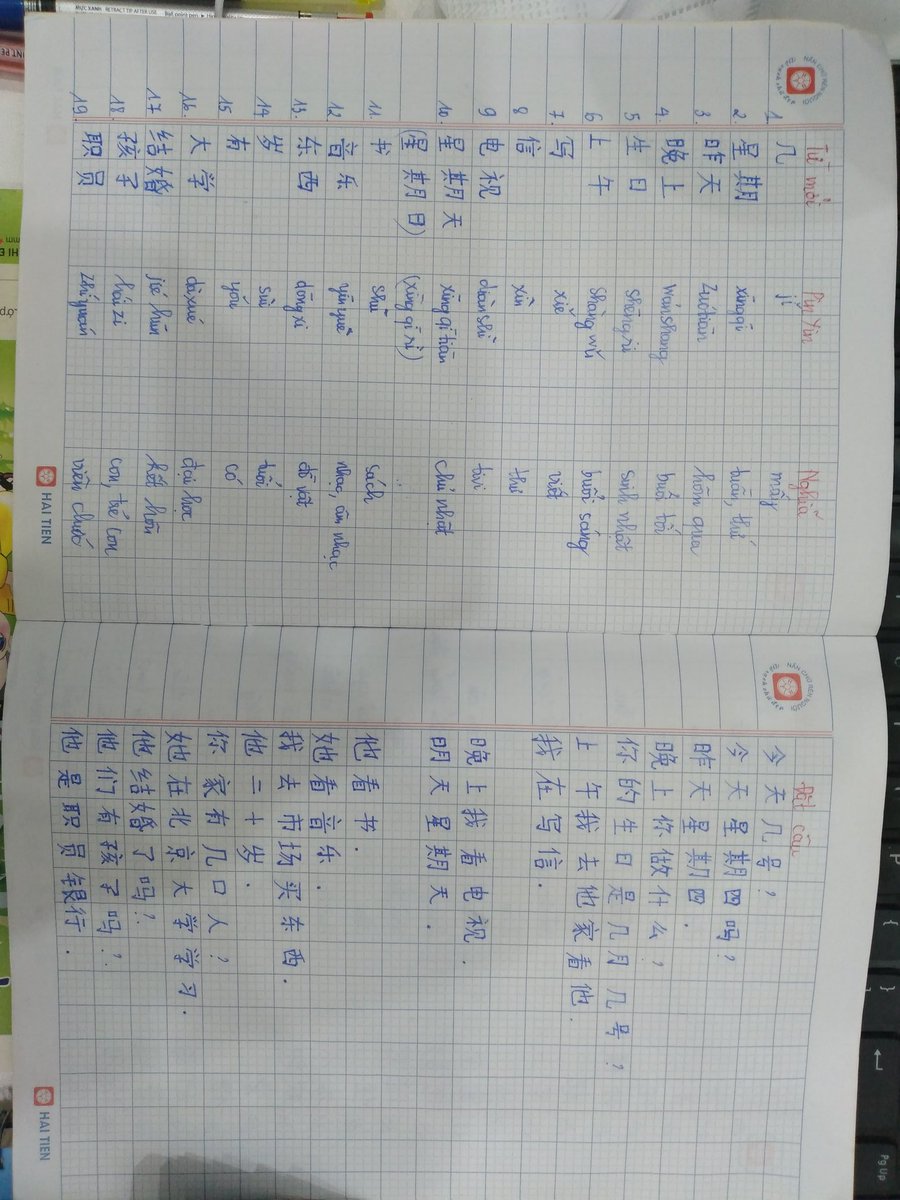 Từ mới Pin Yin Nghĩa
1 几 jǐ mấy
2. 星期 xīngqī tuần, thứ
3. 昨天 zuótiān hôm qua
4. 晚上 wǎnshang buổi tối
5 生日 shēngri sinh nhật
6 上午 shàng wǔ buổi sáng
7. 写 xiě viết
8 信 xìn thư
9 电视 diànshì tivi
10. 星期天 xīng qī tiān chủ nhật
(星期日) (xīng qī rì)
11. 书 shū sách
12 音乐 yīn yuè nhạc, âm nhạc
13. 东西 dōng xi đồ vật
14 岁 suì tuổi
15 有 yǒu có
16. 大学 dà xué đại học
17 结婚 jié hūn kết hôn
18. 孩子 hái zi con, trẻ con
19. 职员 zhí yuán viên chức
Đặt câu
今天几号?
今天星期四吗?
昨天星期四.
晚上你做什么?
你的生日是几月几号?
上午我去他家看他.
我在写信.
晚上我看电视.
明天星期天.
他看书.
她看音乐.
我去市场买东西.
他二十岁.
你家有几口人?
她在北京大学学习.
他结婚了吗?
他们有孩子吗?
他是职员银行.
HẢI TIẾN
HẢI TIẾN
MỰC XANH RETRACT TIP AFTER USE
Ball point pen
PgUp